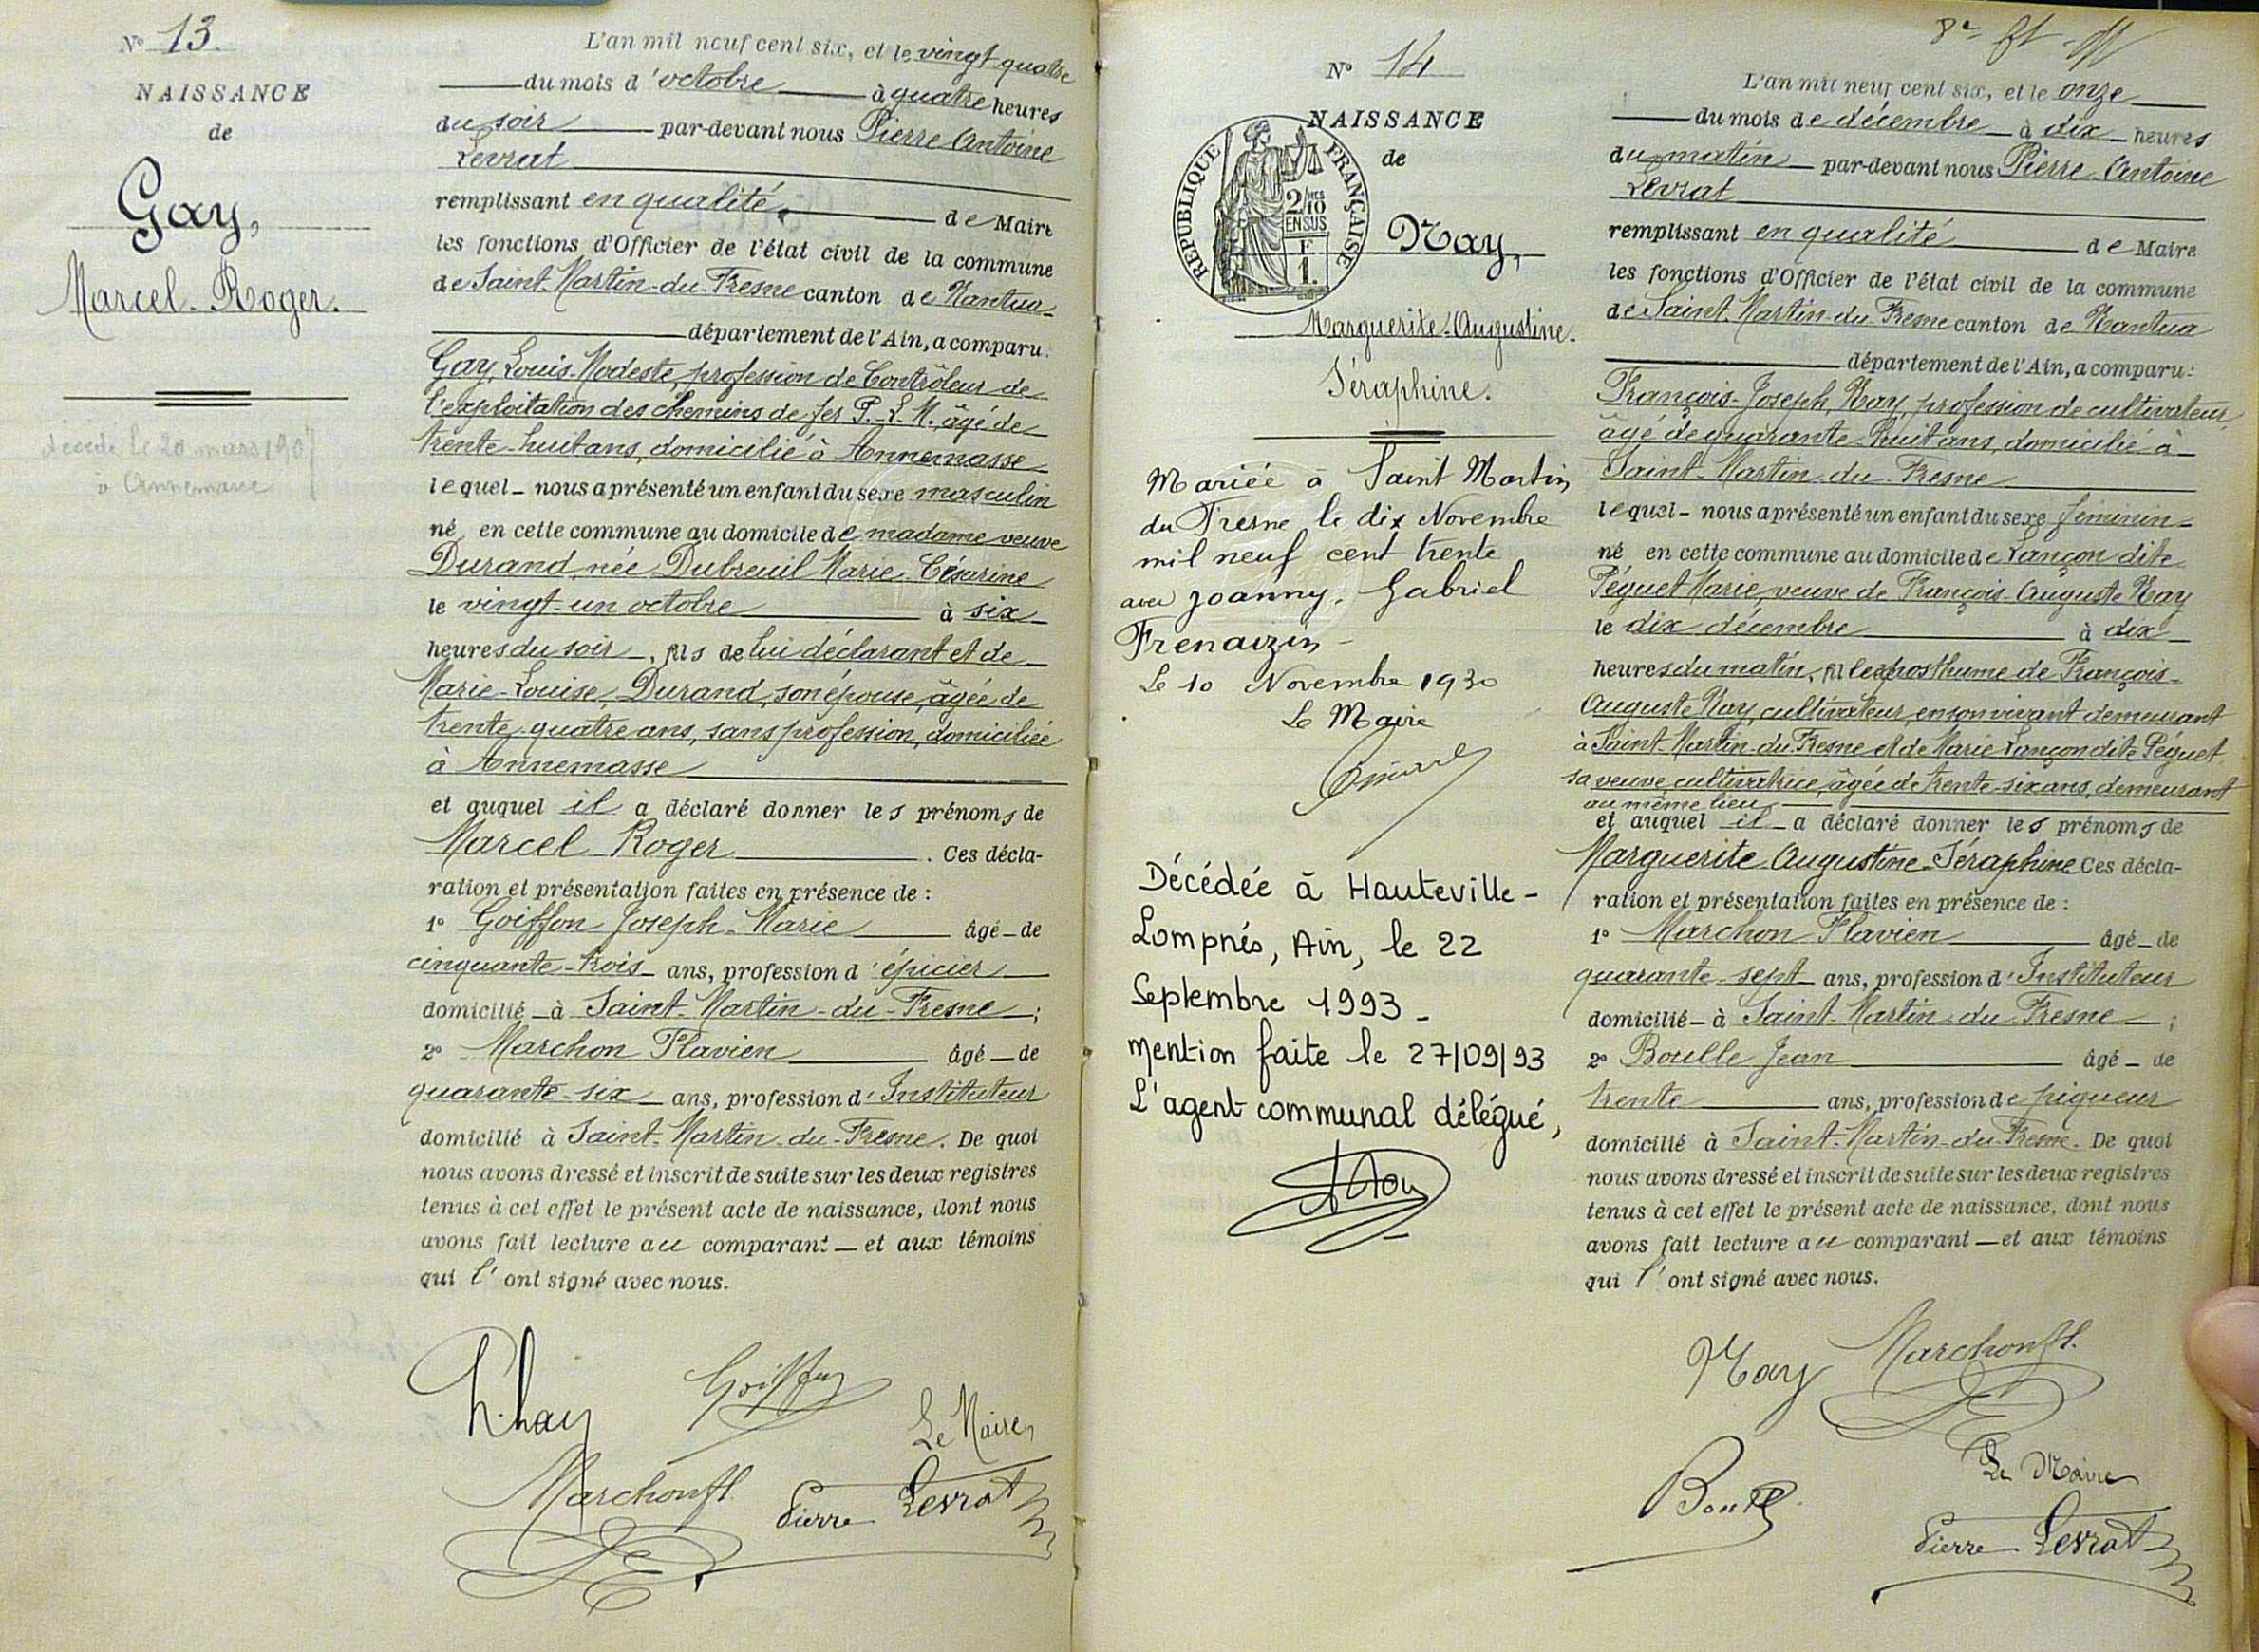 N° 13.
NAISSANCE
de
Gay,
Marcel-Roger.
décédé le 20 mars 1907
à Annemasse
L'an mil neuf cent six, et le vingt-quatre
du mois d'octobre à quatre heures
du soir par-devant nous Pierre Antoine
Levrat
remplissant en qualité de Maire
les fonctions d'Officier de l'état civil de la commune
de Saint-Martin-du-Fresne canton de Nantua
département de l'Ain, a comparu:
Gay, Louis-Modeste, profession de Contrôleur de
l'exploitation des chemins de fer P.-L.-M., âgé de
trente-huit ans, domicilié à Annemasse
lequel - nous a présenté un enfant du sexe masculin
né en cette commune au domicile de madame veuve
Durand, née Dubreuil Marie-Césarine
le vingt-un octobre à six
heures du soir, fils de lui déclarant et de
Marie-Louise, Durand, son épouse, âgée de
trente-quatre ans, sans profession, domiciliée
à Annemasse
et auquel il a déclaré donner les prénoms de
Marcel Roger. Ces décla-
ration et présentation faites en présence de :
1° Goiffon Joseph-Marie âgé - de
cinquante-trois ans, profession d'épicier
domicilié - à Saint-Martin-du-Fresne ;
2° Marchon Flavien âgé - de
quarante-six ans, profession d'Instituteur
domicilié à Saint-Martin-du-Fresne. De quoi
nous avons dressé et inscrit de suite sur les deux registres
tenus à cet effet le présent acte de naissance, dont nous
avons fait lecture au comparant - et aux témoins
qui l'ont signé avec nous.
Goiffon
Le Maire,
Marchon fl.
Pierre Levrat
N° 14
NAISSANCE
de
RÉPUBLIQUE FRANÇAISE
2/10 EN SUS
F 1.
Nay,
Marguerite-Augustine.
Séraphine.
Mariée à Saint Martin
du Fresne le dix Novembre
mil neuf cent trente
avec Joanny, Gabriel
Frenaizin -
Le 10 Novembre 1930
Le Maire
Décédée à Hauteville-
Lompnés, Ain, le 22
Septembre 1993 -
Mention faite le 27/09/93
L'agent communal délégué,
L'an mil neuf cent six, et le onze
du mois de décembre à dix heures
du matin par-devant nous Pierre Antoine
Levrat
remplissant en qualité de Maire
les fonctions d'Officier de l'état civil de la commune
de Saint-Martin-du-Fresne canton de Nantua
département de l'Ain, a comparu:
François-Joseph, Nay, profession de cultivateur
âgé de quarante-huit ans, domicilié à
Saint-Martin-du-Fresne
lequel - nous a présenté un enfant du sexe féminin
né en cette commune au domicile de Lançon dite
Péguet Marie, veuve de François-Auguste Nay
le dix décembre à dix
heures du matin, fille posthume de François-
Auguste Nay, cultivateur, en son vivant demeurant
à Saint-Martin-du-Fresne et de Marie Lançon dite Péguet,
sa veuve, cultivatrice, âgée de trente-six ans, demeurant
au même lieu
et auquel il a déclaré donner les prénoms de
Marguerite-Augustine-Séraphine Ces décla-
ration et présentation faites en présence de :
1° Marchon Flavien âgé - de
quarante-sept ans, profession d'Instituteur
domicilié - à Saint-Martin-du-Fresne ;
2° Boulle Jean âgé - de
trente ans, profession de piqueur
domicilié à Saint-Martin-du-Fresne. De quoi
nous avons dressé et inscrit de suite sur les deux registres
tenus à cet effet le présent acte de naissance, dont nous
avons fait lecture au comparant - et aux témoins
qui l'ont signé avec nous.
Nay Marchon fl.
Boulle
Le Maire
Pierre Levrat